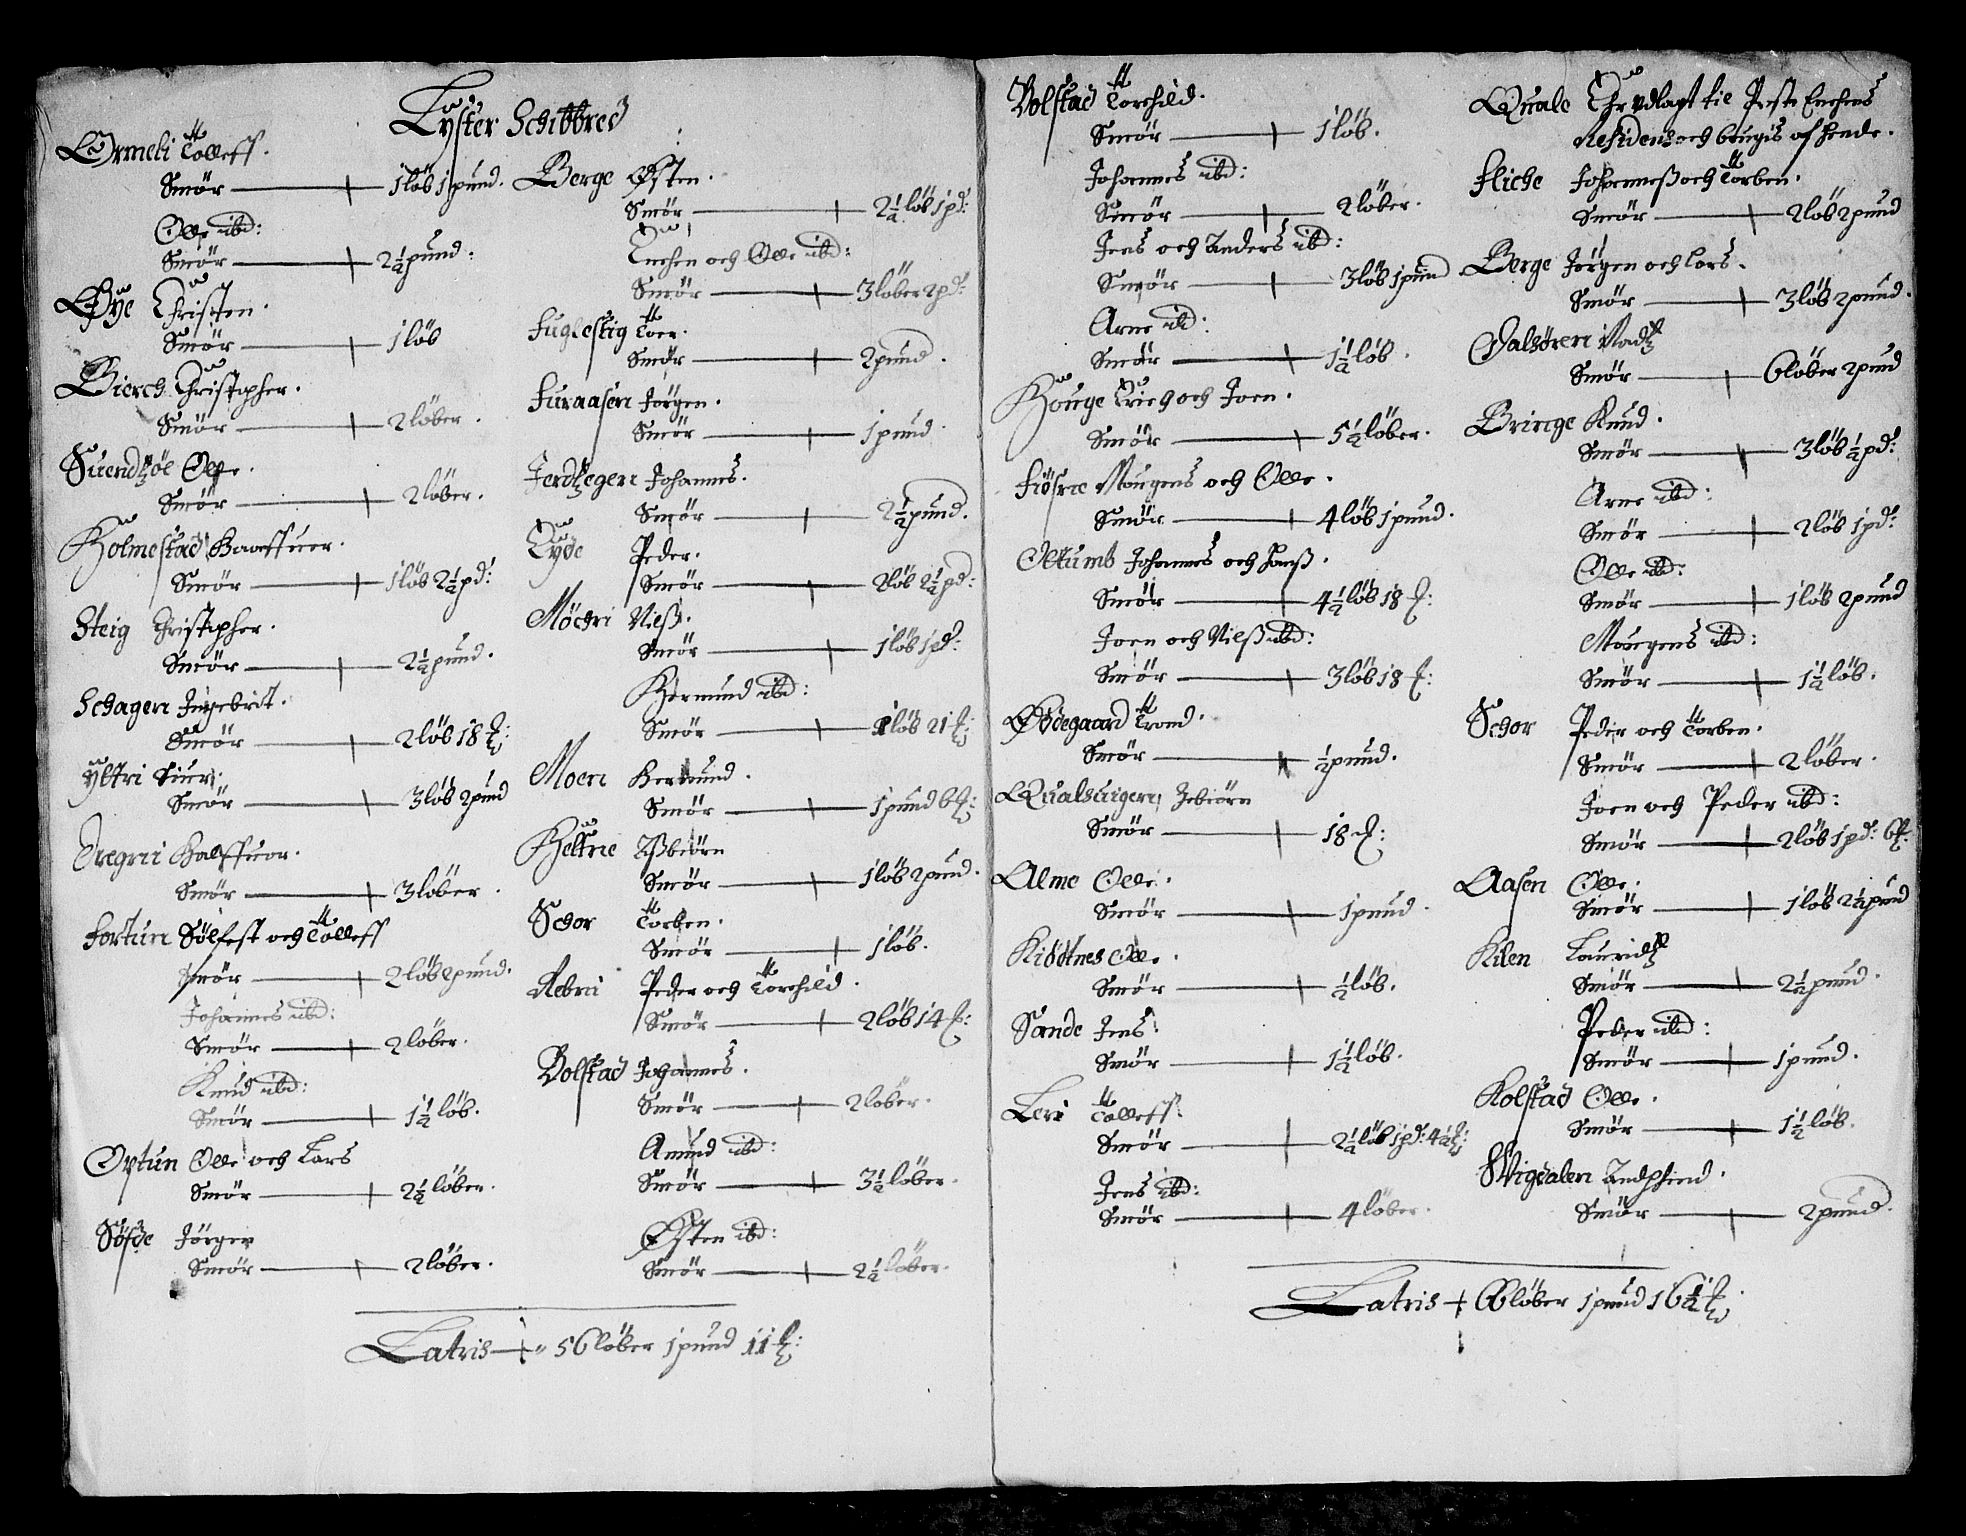 Lyster Schibbred
Ormeli Tolleff.
Smör 1 löb 1 pund.
Olle ibd:
Smör 2½ pund:
Øÿe Christen.
Smör 1 löb
Bierch Christopher.
Smör 2 löber.
Suendtzöl Olle.
Smör 2 löber.
Holmestad Haaffuer.
Smör 1 löb 2½ pd:
Steig Christopher.
Smör 2½ pund.
Schagen Ingebrit.
Smör 2 löb 18 ℔:
Ÿttri Siur.
Smör 3 löb 2 pund
Dregni Halffuor.
Smör 3 löber.
Fortun Sölfest och Tolleff
Smör 2 löb 2 pund.
Johannes ibd:
Smör 2 löber.
Knud ibd:
Smör 1½ löb.
Optun Olle och Lars
Smör 2½ löber.
Söfde Jörgen
Smör 2 löber.
Berge Østen.
Smör 2½ löb 1 pd:
Enchen och Olle ibd:
Smör 3 löber 2 pd:
Fuglestig Toer.
Smör 2 pund.
Furaasen Jörgen.
Smör 1 pund.
Jerdtzegen Johannes.
Smör 2½ pund.
Eÿde Peder.
Smör 2 löb 2½ pd:
Möchri Nilß.
Smör 1 löb 1 pd:
Hermund ibd:
Smör 1 löb 21 ℔:
Moen Hermund.
Smör 1 pund 6 ℔:
Heltne Aßbiörn
Smör 1 löb 2 pund.
Schor Torben.
Smör 1 löb.
Rebni Peder och Torchild.
Smör 2 löb 14 ℔:
Bolstad Johannes.
Smör 2 löber.
Amund ibd:
Smör 3½ löber.
Østen ibd:
Smör 2½ löber.
Latris 56 löber 1 pund 11 ℔:
Bolstad Torchild.
Smör 1 löb.
Johannes ibd:
Smör 2 löber.
Jens och Anders ibd:
Smör 3 löb 1 pund
Arne ibd:
Smör 1½ löb.
Houge Erich och Joen.
Smör 5½ löber.
Fiösne Mougens och Olle.
Smör 4 löb 1 pund.
Ottumb Johannes och Hanß.
Smör 4½ löb 18 ℔:
Joen och Nielß ibd:
Smör 3 löb 18 ℔:
Ødegaard Trond.
Smör ½ pund.
Qualsuigen
Smör 18 ℔:
Alme Olle.
Smör 1 pund.
Kiöttnes Olle.
Smör ½ löb.
Sande Jens
Smör 1½ löb.
Leri Tolleff.
Smör 2½ löb 1 pd: 4½ ℔:
Jens ibd:
Smör 4 löber.
Quale Er udlagt til Preste Enchens
Residens och brugis af hende.
Fliche Johanneß och Torben.
Smör 2 löb 2 pund
Berge Jörgen och Lars.
Smör 3 löb 2 pund.
Dalsören Madtz
Smör 6 löber 2 pund
Bringe Knud.
Smör 3 löb ½ pd:
Arne ibd:
Smör 2 löb 1 pd:
Olle ibd:
Smör 1 löb 2 pund
Mougens ibd:
Smör 1½ löb.
Schor Peder och Torben.
Smör 2 löber.
Joen och Peder ibd:
Smör 2 löb 1 pd: 6 ℔:
Aasen Olle.
Smör 1 löb 2½ pund
Kilen Lauridtz
Smör 2½ pund.
Peder ibd:
Smör 1 pund.
Kolstad Olle.
Smör 1½ löb.
Wigdalen Andphind.
Smör 2 pund.
Latris 66 löber 1 pund 16½ ℔: